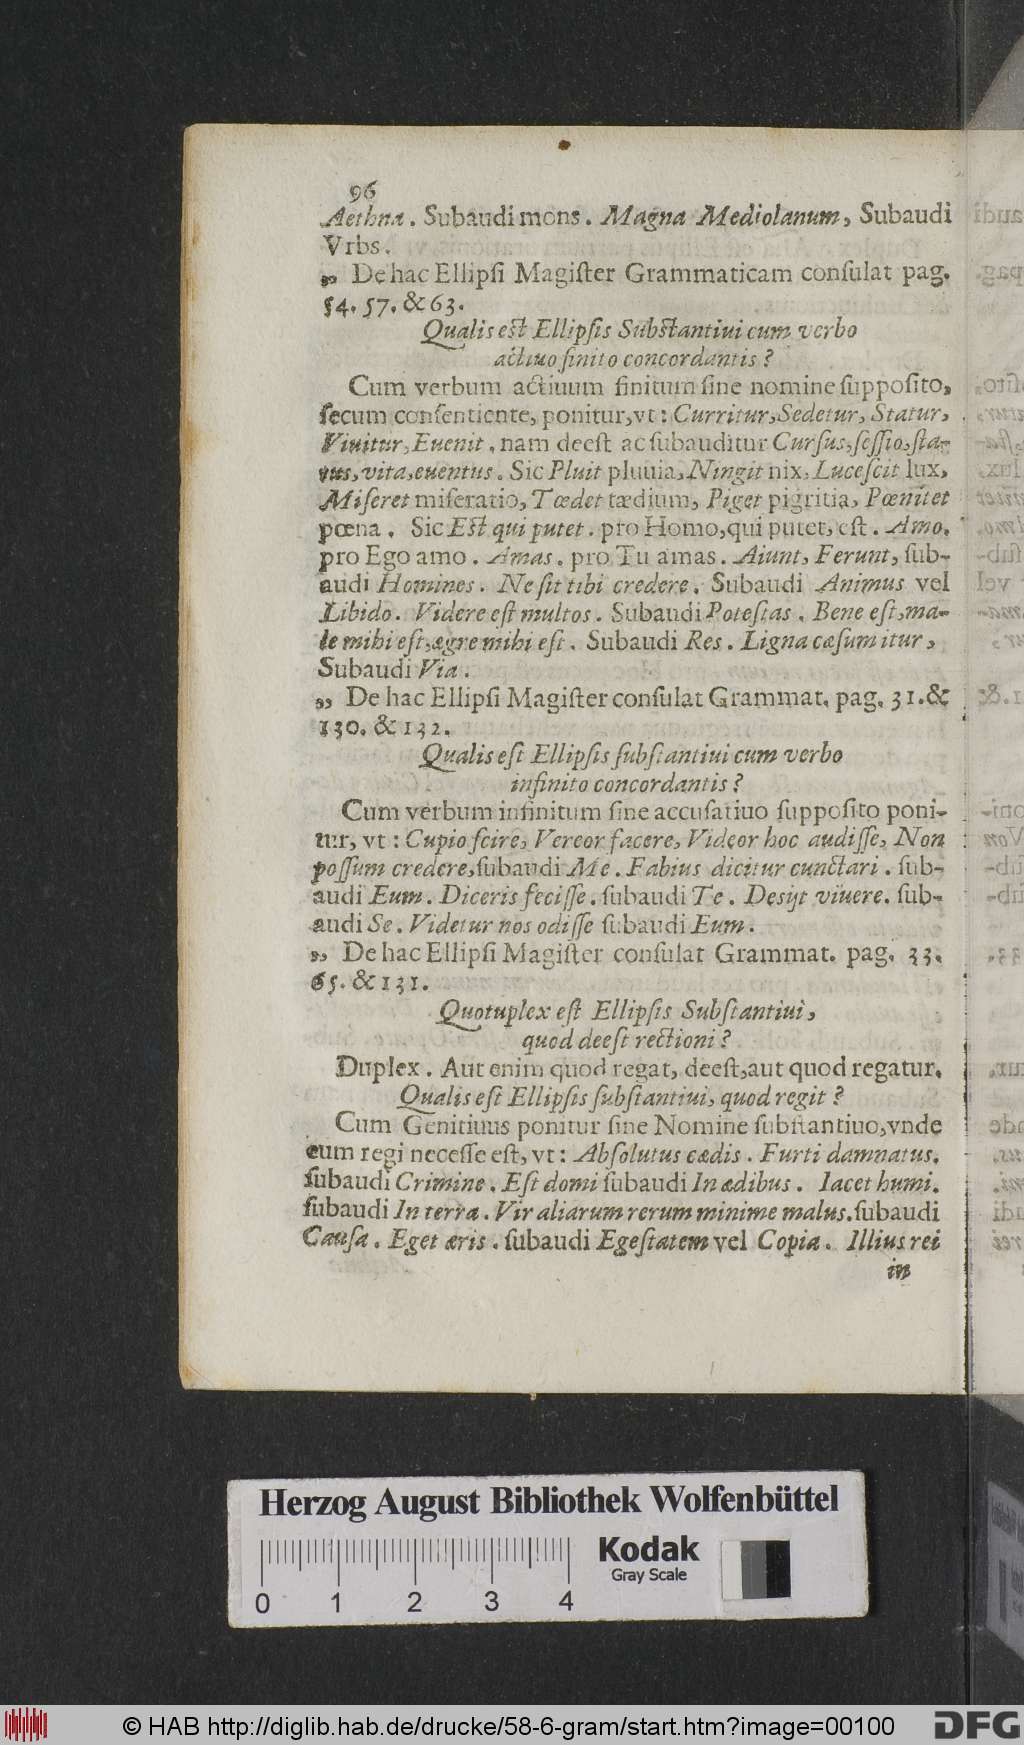 96
Aethna. Subaudi mons. Magna Mediolanum, Subaudi
Vrbs.
„ De hac Ellipſi Magiſter Grammaticam conſulat pag.
54. 57. & 63.
Qualis eſt Ellipſis Subſtantiui cum verbo
actiuo finito concordantis?
Cum verbum actiuum finitum ſine nomine ſuppoſito,
ſecum conſentiente, ponitur, vt: Curritur, Sedetur, Statur,
Viuitur, Euenit, nam deeſt ac ſubauditur Curſus, ſeſſio, ſta-
tus, vita, euentus. Sic Pluit pluuia, Ningit nix, Luceſcit lux,
Miſeret miſeratio, Tœdet tædium, Piget pigritia, Pœnitet
pœna. Sic Eſt qui putet. pro Homo, qui putet, eſt. Amo.
pro Ego amo. Amas. pro Tu amas. Aiunt, Ferunt, ſub-
audi Homines. Ne ſit tibi credere. Subaudi Animus vel
Libido. Videre eſt multos. Subaudi Poteſtas. Bene eſt, ma-
le mihi eſt, ægre mihi eſt. Subaudi Res. Ligna cæſum itur,
Subaudi Via.
„ De hac Ellipſi Magiſter conſulat Grammat. pag. 31. &
130. & 132.
Qualis eſt Ellipſis ſubſtantiui cum verbo
infinito concordantis?
Cum verbum infinitum ſine accuſatiuo ſuppoſito poni-
tur, vt: Cupio ſcire, Vereor facere, Videor hoc audiſſe, Non
poſſum credere, ſubaudi Me. Fabius dicitur cunctari. ſub-
audi Eum. Diceris feciſſe. ſubaudi Te. Desijt viuere. ſub-
audi Se. Videtur nos odiſſe ſubaudi Eum.
„ De hac Ellipſi Magiſter conſulat Grammat. pag. 33.
65. & 131.
Quotuplex eſt Ellipſis Subſtantiui,
quod deeſt rectioni?
Duplex. Aut enim quod regat, deeſt, aut quod regatur.
Qualis eſt Ellipſis ſubſtantiui, quod regit?
Cum Genitiuus ponitur ſine Nomine ſubſtantiuo, vnde
eum regi neceſſe eſt, vt: Abſolutus cædis. Furti damnatus.
ſubaudi Crimine. Eſt domi ſubaudi In ædibus. Iacet humi.
ſubaudi In terra. Vir aliarum rerum minime malus. ſubaudi
Cauſa. Eget æris. ſubaudi Egeſtatem vel Copia. Illius rei
in
Herzog August Bibliothek Wolfenbüttel
Kodak
Gray Scale
0 1 2 3 4
© HAB http://diglib.hab.de/drucke/58-6-gram/start.htm?image=00100
DFG